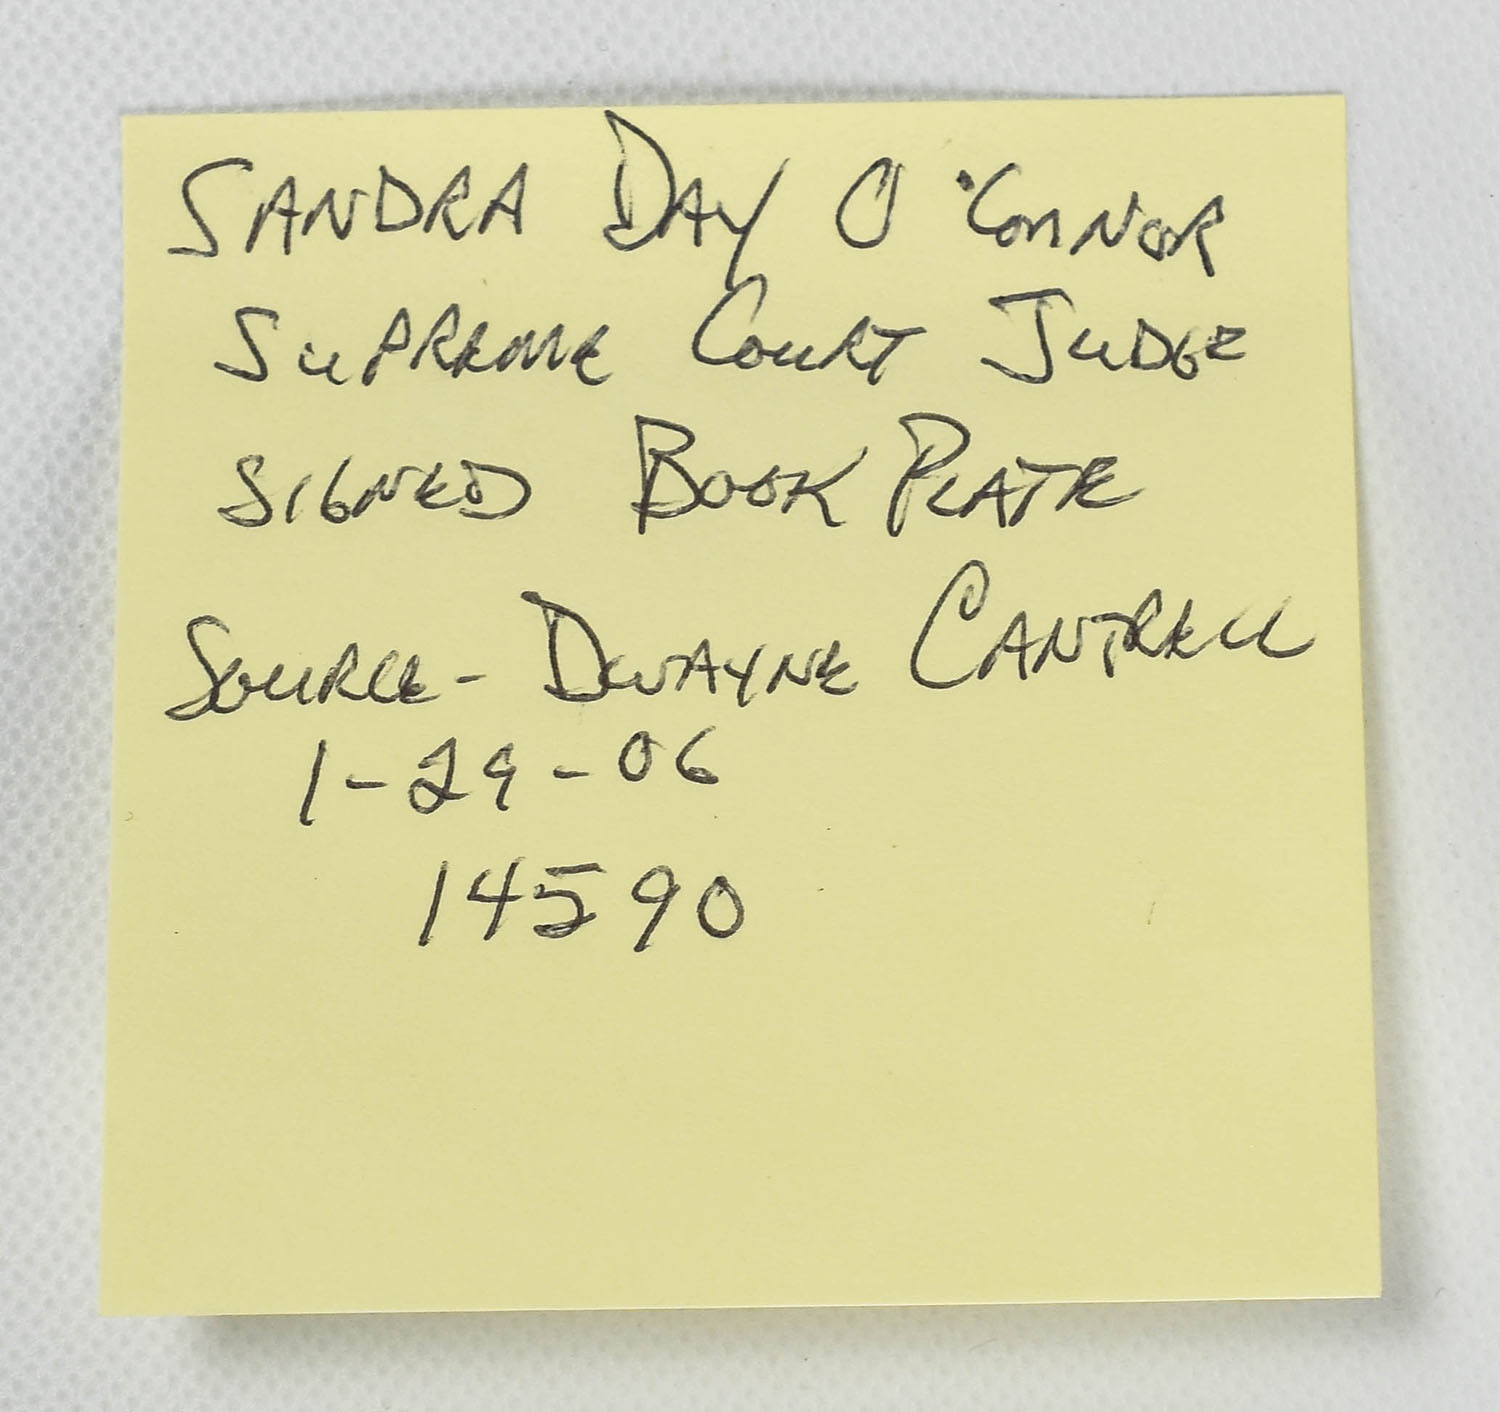 SANDRA DAY O'CONNOR
SUPREME COURT JUDGE
SIGNED BOOK PLATE
SOURCE - DWAYNE CANTRELL
1-29-06
14590